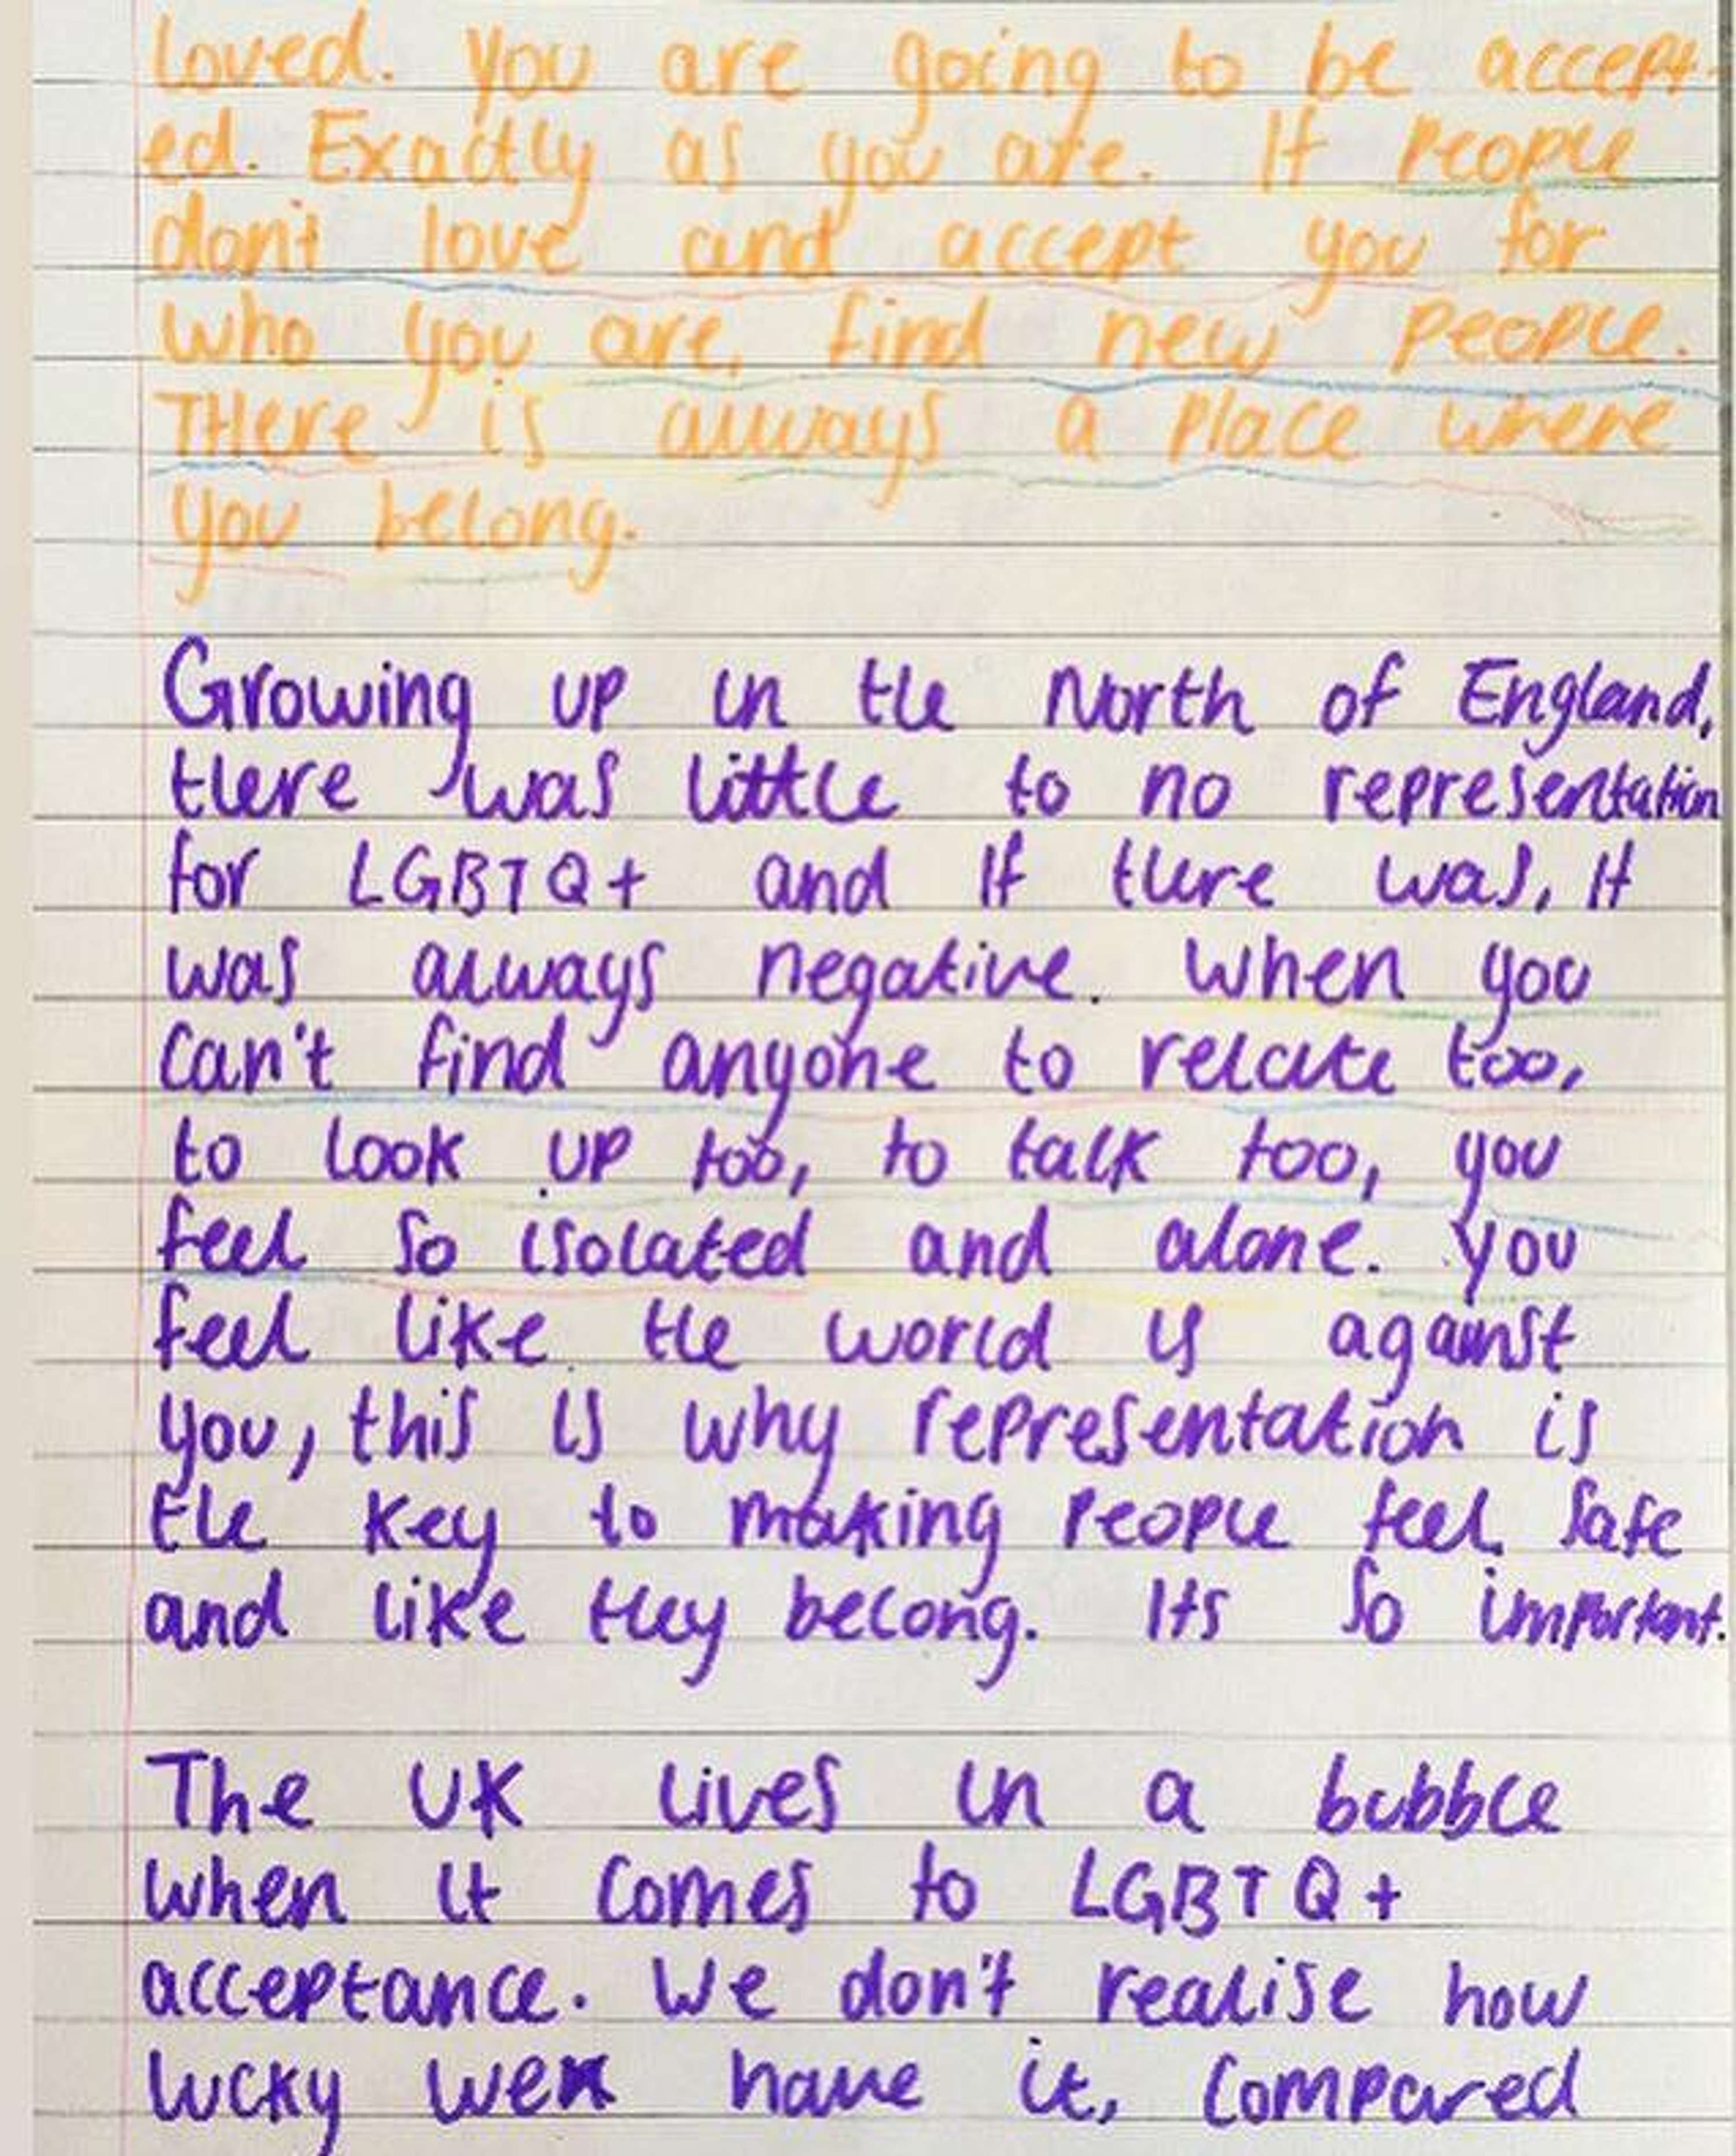 Loved. You are going to be accept-
ed. Exactly as you are. If people
don't love and accept you for
who you are, find new people.
THere is always a place where
you belong.
Growing up in the North of England,
there was little to no representation
for LGBTQ+ and if there was, it
was always negative. When you
can't find anyone to relate too,
to look up too, to talk too, you
feel so isolated and alone. You
feel like the world is against
you, this is why representation is
the key to making people feel safe
and like they belong. Its so important.
The UK lives in a bubble
when it comes to LGBTQ+
acceptance. We don't realise how
lucky we have it, compared